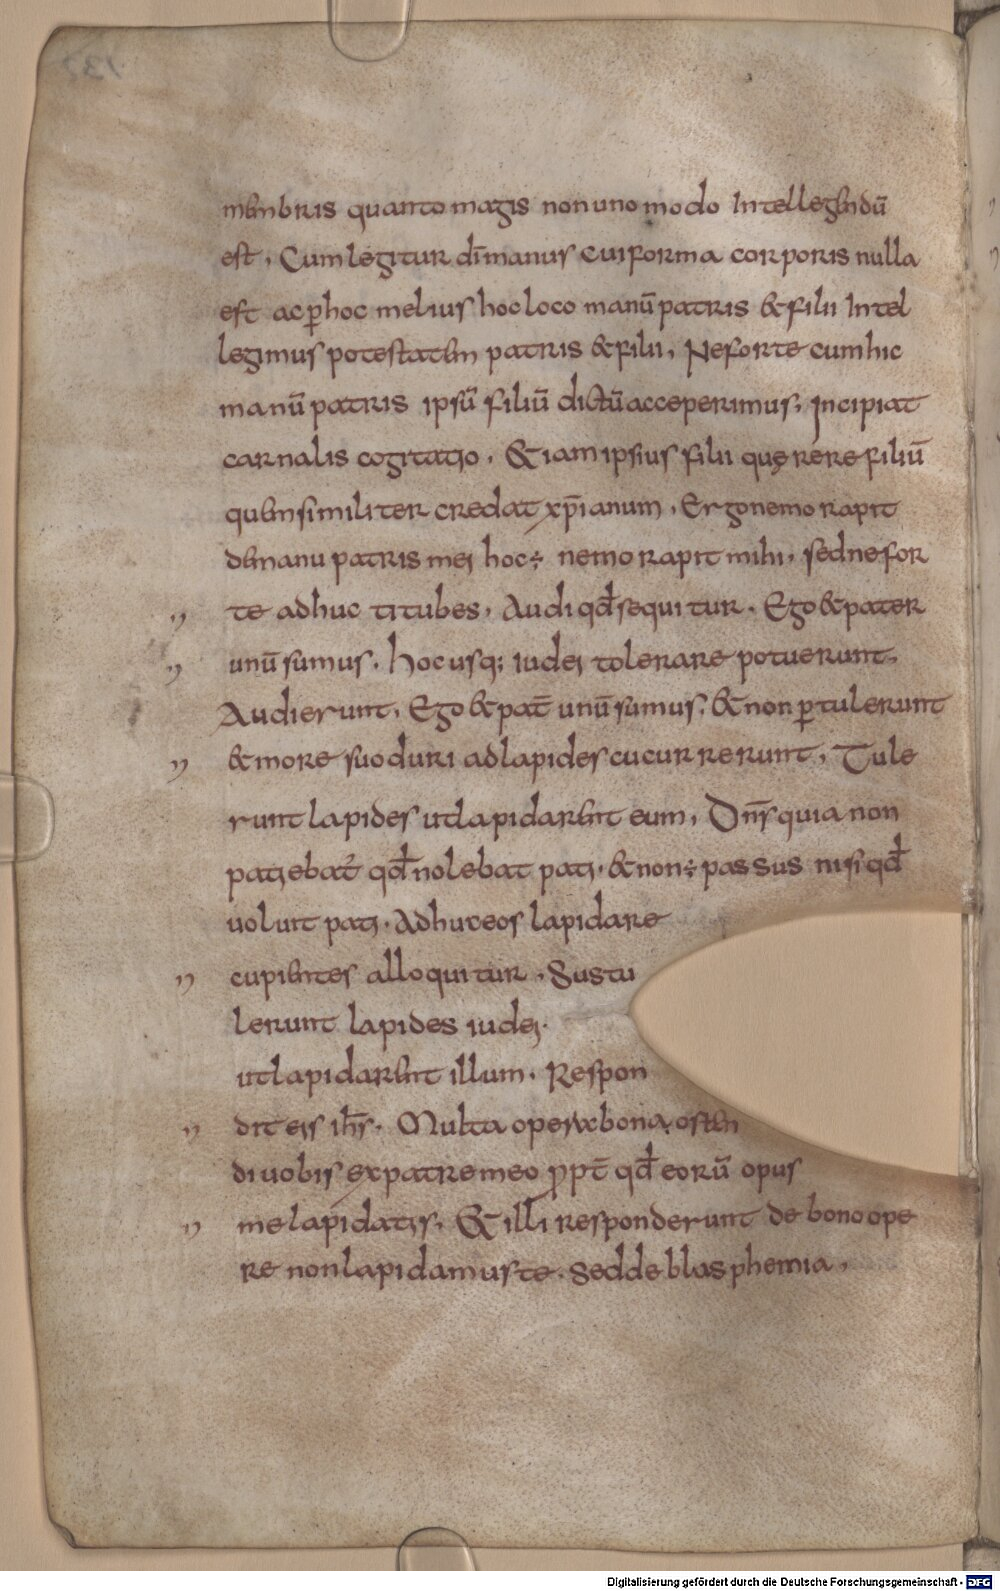 membris quanto magis non uno modo Intellegendū
est, Cum legitur dī manus cui forma corporis nulla
est ac p̄ hoc melius hoc loco manū patris &filii Intel
legimus potestatem patris &filii, Ne forte cum hic
manū patris ipsū filiū dictū acceperimus, incipiat
carnalis cogitatio. &iam ipsius filii quęrere filiū
quem similiter credat xp̄ianum, Ergo nemo rapit
de manu patris mei hoc ÷ nemo rapit mihi, sed ne for
te adhuc titubes, Audi qđ sequitur. Ego &pater
unū sumus. hoc usq; iudei tolerare potuerunt,
Audierunt, Ego &pat̄ unū sumus, &non p̄tulerunt
&more suo duri ad lapides cucurrerunt, Tule
runt lapides ut lapidarent eum, Dn̄s quia non
patiebat̄ qđ nolebat pati. &non ÷ passus nisi qđ
uoluit pati. Adhuc eos lapidare
cupientes alloquitur. Sustu
lerunt lapides iudei.
ut lapidarent illum. Respon
dit eis ih̄s. Multa opera bona osten
di uobis ex patre meo ppt̄ qđ eorū opus
me lapidatis, &illi responderunt de bono ope
re non lapidamus te. Sed de blasphemia,
Digitalisierung gefördert durch die Deutsche Forschungsgemeinschaft - DFG